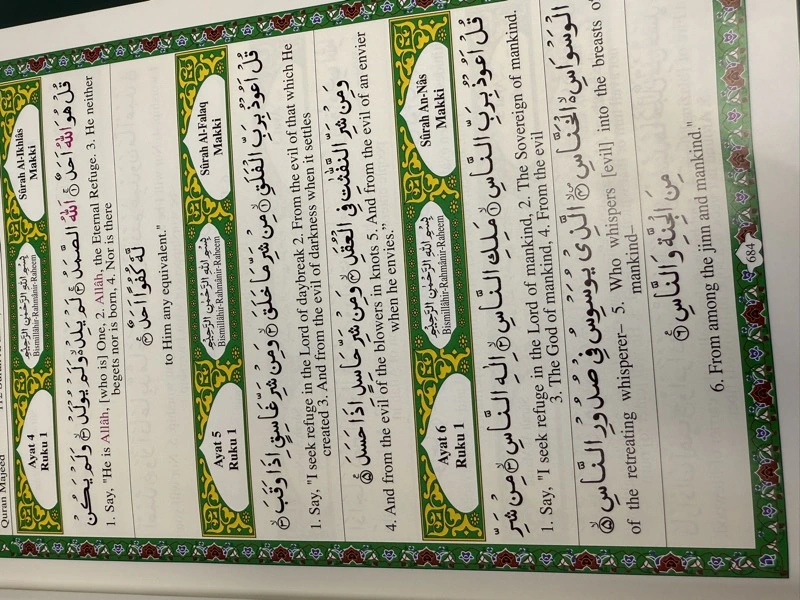 Quran Majeed
Ayat 4
Ruku 1
بِسْمِ اللهِ الرَّحْمٰنِ الرَّحِيْمِ
Bismillâhir-Rahmânir-Raheem
Sûrah Al-Ikhlâs
Makki
قُلْ هُوَ اللهُ اَحَدٌ ۚ ﴿۱﴾ اَللهُ الصَّمَدُ ۚ ﴿۲﴾ لَمْ يَلِدْ ۙ وَلَمْ يُوْلَدْ ۙ ﴿۳﴾ وَلَمْ يَكُنْ
1. Say, "He is Allâh, [who is] One, 2. Allâh, the Eternal Refuge. 3. He neither
begets nor is born. 4. Nor is there
لَّهٗ كُفُوًا اَحَدٌ ﴿۴﴾
to Him any equivalent."
Ayat 5
Ruku 1
بِسْمِ اللهِ الرَّحْمٰنِ الرَّحِيْمِ
Bismillâhir-Rahmânir-Raheem
Sûrah Al-Falaq
Makki
قُلْ اَعُوْذُ بِرَبِّ الْفَلَقِ ۙ ﴿۱﴾ مِنْ شَرِّ مَا خَلَقَ ۙ ﴿۲﴾ وَمِنْ شَرِّ غَاسِقٍ اِذَا وَقَبَ ۙ ﴿۳﴾
1. Say, "I seek refuge in the Lord of daybreak 2. From the evil of that which He
created 3. And from the evil of darkness when it settles
وَمِنْ شَرِّ النَّفّٰثٰتِ فِي الْعُقَدِ ۙ ﴿۴﴾ وَمِنْ شَرِّ حَاسِدٍ اِذَا حَسَدَ ﴿۵﴾
4. And from the evil of the blowers in knots 5. And from the evil of an envier
when he envies."
Ayat 6
Ruku 1
بِسْمِ اللهِ الرَّحْمٰنِ الرَّحِيْمِ
Bismillâhir-Rahmânir-Raheem
Sûrah An-Nâs
Makki
قُلْ اَعُوْذُ بِرَبِّ النَّاسِ ۙ ﴿۱﴾ مَلِكِ النَّاسِ ۙ ﴿۲﴾ اِلٰهِ النَّاسِ ۙ ﴿۳﴾ مِنْ شَرِّ
1. Say, "I seek refuge in the Lord of mankind, 2. The Sovereign of mankind.
3. The God of mankind, 4. From the evil
الْوَسْوَاسِ ۙ الْخَنَّاسِ ۙ ﴿۴﴾ الَّذِيْ يُوَسْوِسُ فِيْ صُدُوْرِ النَّاسِ ۙ ﴿۵﴾
of the retreating whisperer– 5. Who whispers [evil] into the breasts of
mankind–
مِنَ الْجِنَّةِ وَالنَّاسِ ﴿۶﴾
6. From among the jinn and mankind."
684